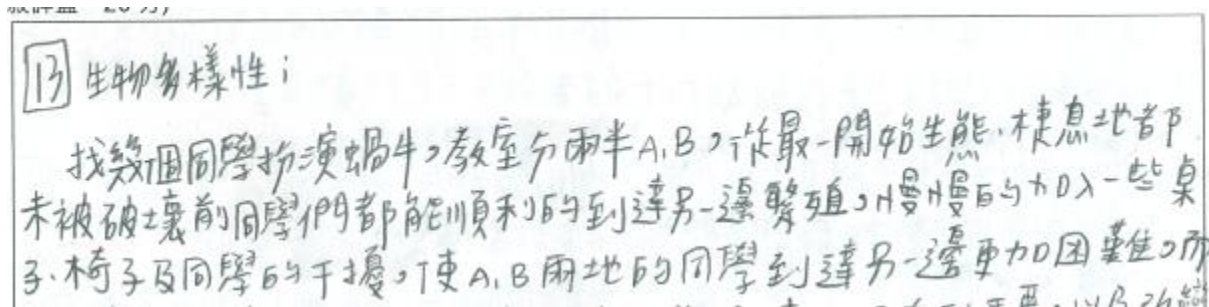 13 生物多樣性:
找幾個同學扮演蝸牛,教室分兩半A、B,從最一開始生態、棲息地都
未被破壞前同學們都能順利的到達另一邊繁殖,慢慢的加入一些桌
子、椅子及同學的干擾,使A、B兩地的同學到達另一邊更加困難,而
以及改變